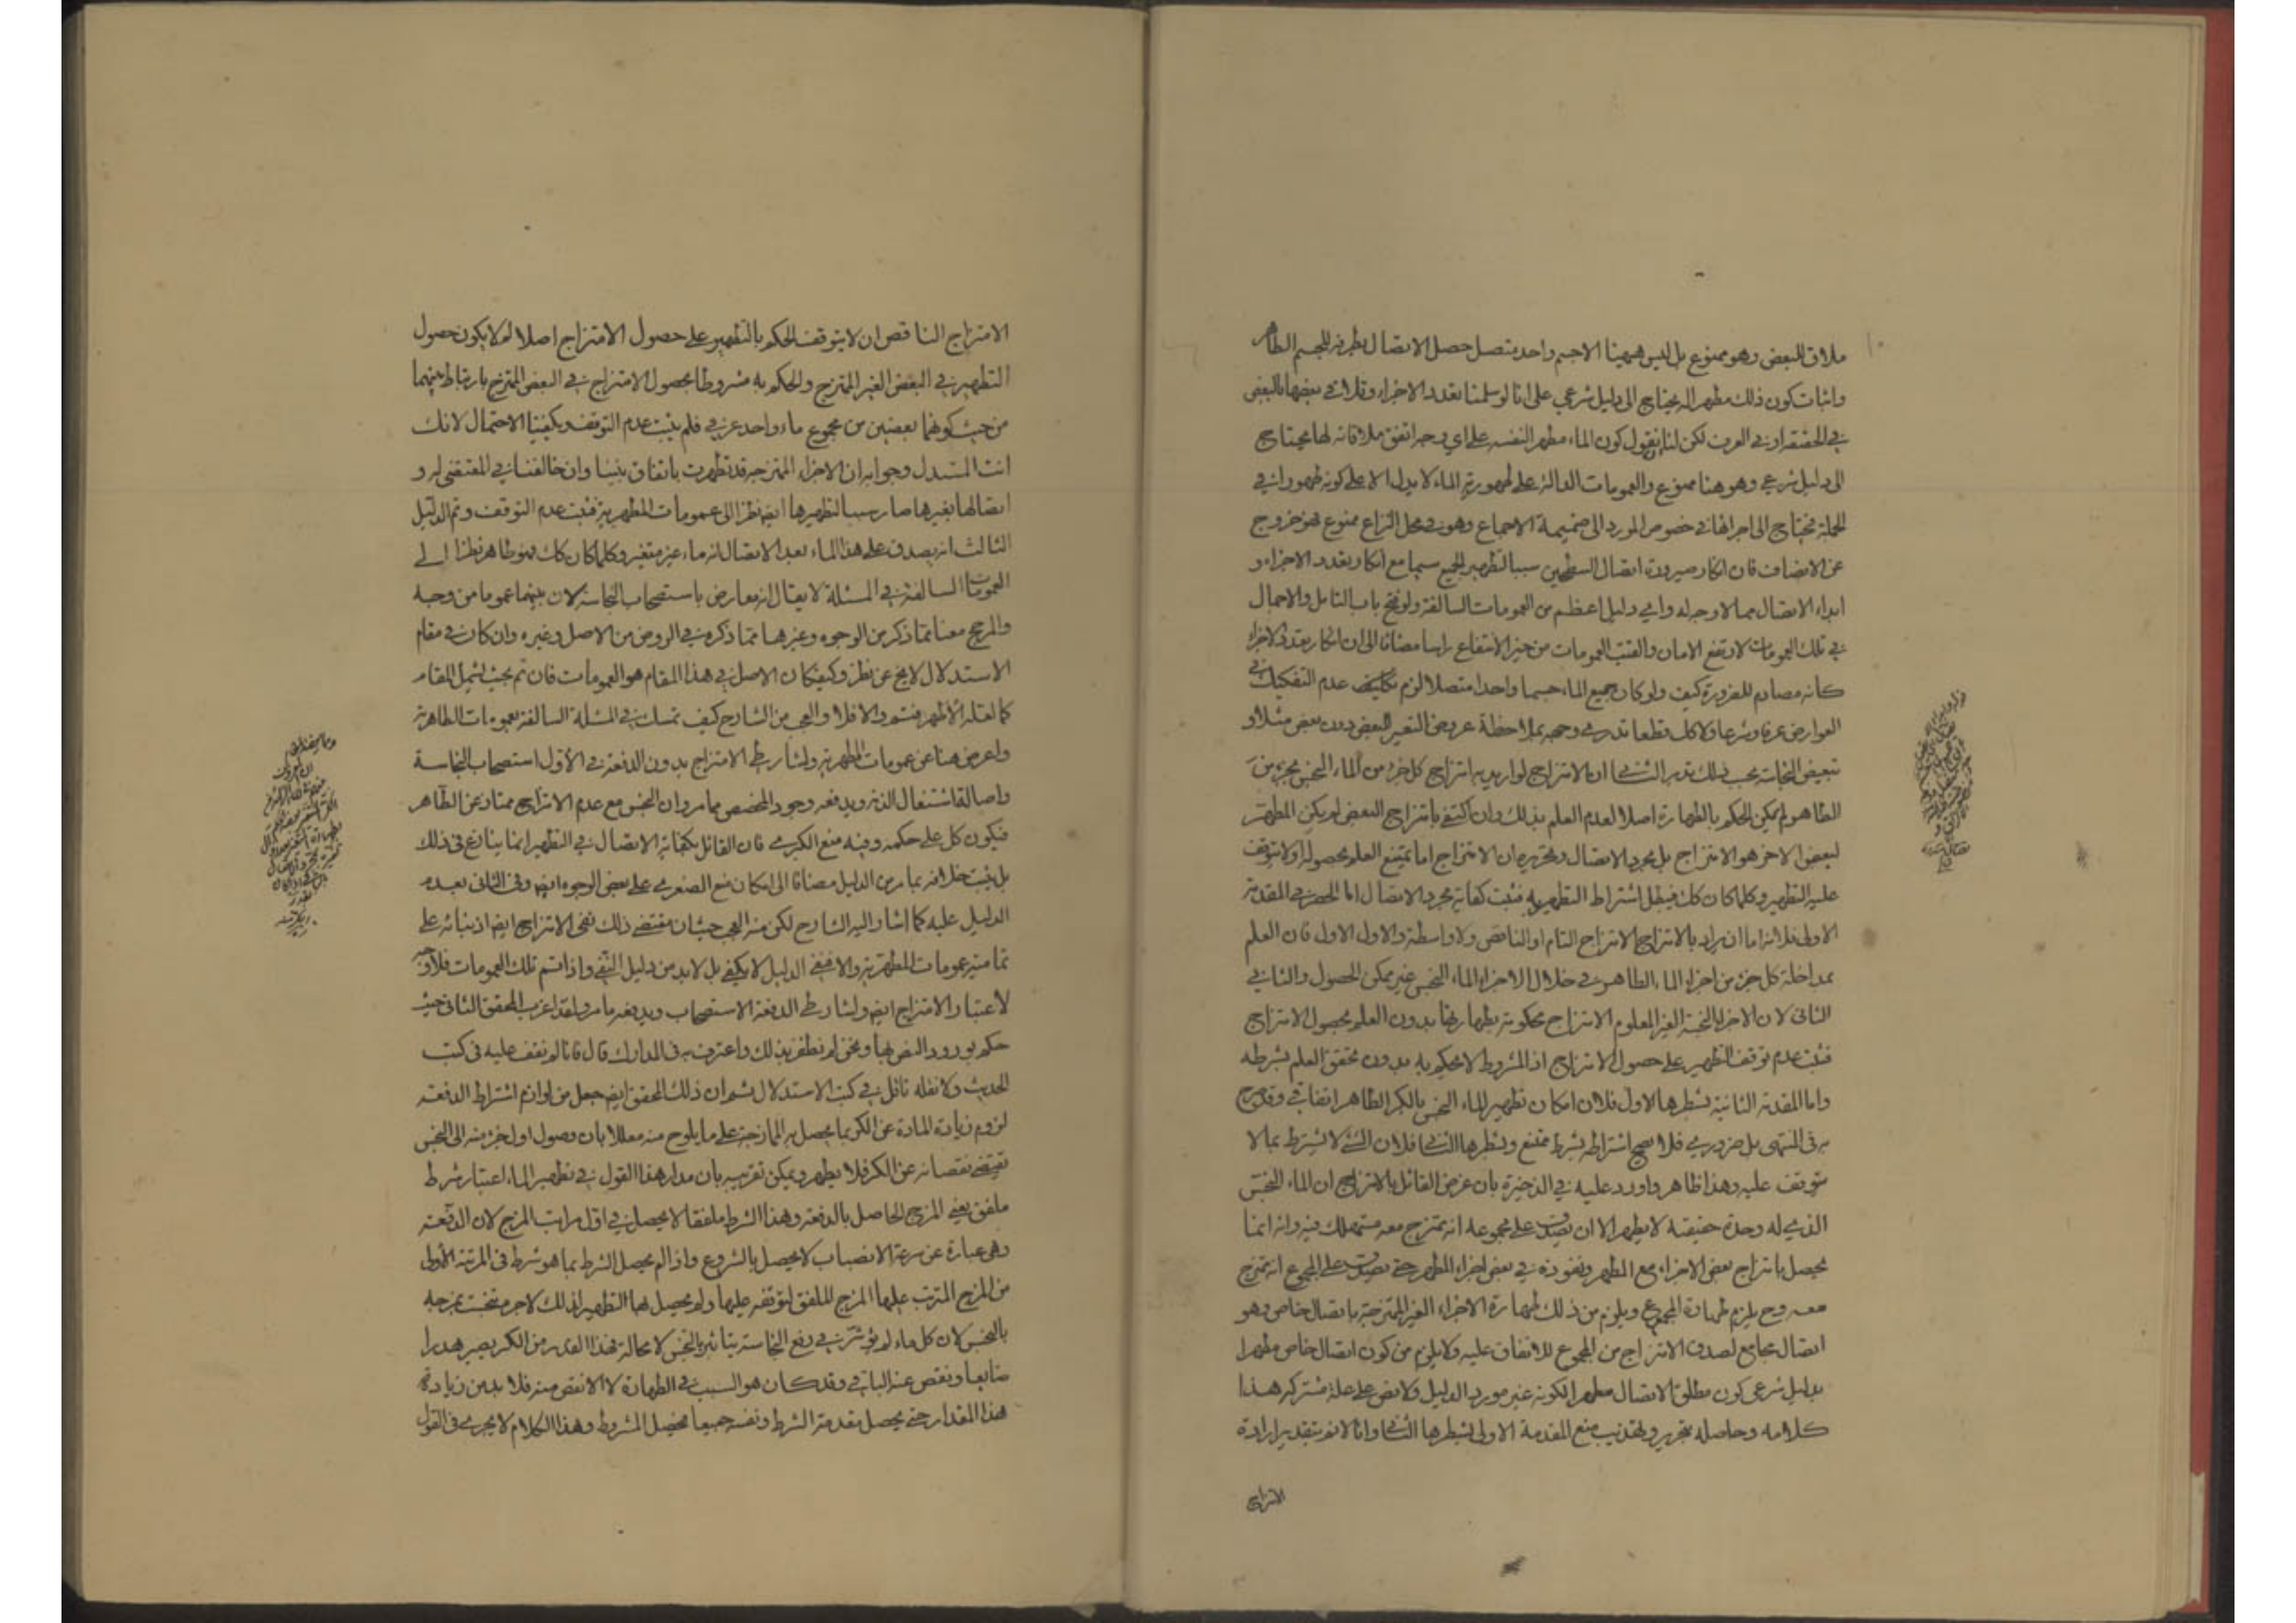 ملاق للبعض وهو ممنوع بل ليس هيهنا الا جسم واحد متصل حصل الاتصال بطرفه للجسم الطاهر
واثبات كون ذلك مطهرا له يحتاج الى دليل شرعي على انا لو سلمنا تعدد الاجزاء وتلاقي بعضها بالبعض
في الحقيقة او في العرف لكن لنا ان نقول كون الماء مطهر النفسه على اي وجه اتفق ملاقاته لها يحتاج
الى دليل شرعي وهو هنا ممنوع والعمومات الدالة على طهورية الماء لا يدل الا على كونه طهورا في
الجملة فيحتاج الى اجرائها في خصوص المورد الى ضميمة الاجماع وهو في محل النزاع ممنوع فهو خروج
عن الانصاف فان انكار صيرورة اتصال السطحين سببا لتطهير الجميع سيما مع انكار تعدد الاجزاء و
ابداء الاتصال مما لا وجه له واي دليل اعظم من العمومات السالفة ولو فتح باب التامل والاجمال
في تلك العمومات لارتفع الامان والقيت العمومات من حيز الانتفاع راسا مضافا الى ان انكار تعدد الاجزاء
كانه مصادم للضرورة كيف ولو كان جميع الماء جسما واحدا متصلا لزم عدم التفكيك في
العوارض عرفا وشرعا ولا كل قطعا تدبر في وجهه بملاحظة عروض التغير للبعض دون بعض مثلا و
تبعيض النجاسة بحسب ذلك تدبر الثاني ان الامتزاج لو اريد به امتزاج كل جزء من الماء النجس بجزء من
الطاهر لم يمكن الحكم بالطهارة اصلا لعدم العلم بذلك وان اكتفى بامتزاج البعض لم يكن المطهر
للبعض الاخر هو الامتزاج بل مجرد الاتصال وتحريره ان الامتزاج اما يمتنع العلم بحصوله او لا يتوقف
عليه التطهير وكلما كان كك فيبطل اشتراط التطهير به فثبت كفاية مجرد الاتصال اما الحصر في المقدمة
الاولى فلانه اما ان يراد بالامتزاج الامتزاج التام او الناقص ولا واسطة والاول الاول فان العلم
بمداخلة كل جزء من اجزاء الماء الطاهر في خلال الاجزاء الماء النجس غير ممكن الحصول والثاني
الثاني لان الاجزاء النجسة الغير المعلوم الامتزاج محكومة بطهارتها بدون العلم بحصول الامتزاج
فثبت عدم توقف التطهير على حصول الامتزاج اذ المشروط لا يحكم به بدون تحقق العلم بشرطه
واما المقدمة الثانية بشطرها الاول فلان امكان تطهير الماء النجس بالكر الطاهر اتفاقي وقد صرح
به في المنتهى بل ضروري فلا يصح اشتراطه بشرط ممتنع وبشطرها الثاني فلان الشئ لا يشترط بما لا
يتوقف عليه وهذا ظاهر واورد عليه في الذخيرة بان غرض القائل بالامتزاج ان الماء النجس
الذي له وحدة حقيقة لا يطهر الا ان يصدق على مجموعه انه ممتزج معه مستهلك فيه وانه انما
يحصل بامتزاج بعض الاجزاء مع المطهر ونفوذه في بعض اجزاء المطهر حتى يصدق على المجموع انه ممتزج
معه وح يلزم طهارة المجموع ويلزم من ذلك طهارة الاجزاء الغير الممتزجة باتصال خاص وهو
اتصال مجامع لصدق الامتزاج من المجموع للاتفاق عليه ولا يلزم من كون اتصال خاص مطهرا
بدليل شرعي كون مطلق الاتصال مطهرا لكونه غير مورد الدليل ولا نص على علة مشتركة هذا
كلامه وحاصله بتحرير وتهذيب منع المقدمة الاولى بشطرها الثاني وانا لانم بتقدير ارادة
الامتزاج
الامتزاج الناقص ان لا يتوقف الحكم بالتطهير على حصول الامتزاج اصلا لم لا يكون حصول
التطهير في البعض الغير الممتزج والحكم به مشروطا بحصول الامتزاج في البعض الممتزج بارتباط بينهما
من حيث كونهما بعضين من مجموع ماء واحد عرفي فلم يثبت عدم التوقف ويكفينا الاحتمال لانك
انت المستدل وجوابه ان الاجزاء الممتزجة قد تطهرت باتفاق بيننا وان خالفنا في المقتضى له و
اتصالها بغيرها صار سببا لتطهيرها ايضا نظرا الى عمومات المطهرية فثبت عدم التوقف وتم الدليل
الثالث انه يصدق على هذا الماء بعد الاتصال انه ماء غير متغير وكلما كان كك فهو طاهر نظرا الى
العمومات السالفة في المسئلة لا يقال انه معارض باستصحاب النجاسة لان بينهما عموما من وجه
والمرجح معنا مما ذكر من الوجوه وغيرها مما ذكره في الروض من الاصل وغيره وان كان في مقام
الاستدلال لا يخ عن نظر وكيف كان الاصل في هذا المقام هو العمومات فان تم بحيث يشمل المقام
كما لعله الاظهر فنتعد والا فلا والعجب من الشارح كيف تمسك في المسئلة السالفة بعمومات الطاهرة
واعرض هنا عن عمومات المطهرية ولشارط الامتزاج بدون الدفعة في الاول استصحاب النجاسة
واصالة اشتغال الذمة ويدفعه وجود المخصص مما مر وان النجس مع عدم الامتزاج ممتاز عن الطاهر
فيكون كل على حكمه وفيه منع الكبرى فان القائل بكفاية الاتصال في التطهير انما ينازع في ذلك
بل يثبت خلافه بما مر من الدليل مضافا الى امكان منع الصغرى على بعض الوجوه ايضا وفي الثاني بعدم
الدليل عليه كما اشار اليه الشارح لكن منه العجب حيث ان مقتضى ذلك نفي الامتزاج ايضا اذ بنائه على
تمامية عمومات المطهرية والا فنفي الدليل لا يكفي بل لابد من دليل النفي واذا تم تلك العمومات فلا وجه
لاعتبار الامتزاج ايضا ولشارط الدفعة الاستصحاب ويدفعه ما مر ولقد اغرب المحقق الثاني حيث
حكم بورود النص بها ونحن لم نظفر بذلك واعترف به في المدارك قال فانا لم نقف عليه في كتب
الحديث ولا نقله ناقل في كتب الاستدلال ثم ان ذلك المحقق ايضا جعل من لوازم اشتراط الدفعة
لزوم زيادة المادة عن الكر بما يحصل به الممازجة على ما يلوح منه معللا بان وصول اول جزء منه الى النجس
يقتضي نقصانه عن الكر فلا يطهر ويمكن تقريبه بان مدار هذا القول في تطهير الماء اعتبار شرط
ملفق يعني المزج الحاصل بالدفعة وهذا الشرط ملفقا لا يحصل في اول مراتب المزج لان الدفعة
وهي عبارة عن سرعة الانصباب لا يحصل بالشروع واذا لم يحصل الشرط بما هو شرط في المرتبة الاولى
من المزج المترتب عليها المزج الملفق لتوقفه عليها ولم يحصل لها التطهير لذلك لاجرم تنجست بمزجه
بالنجس لان كل ماء لم يؤثر في رفع النجاسة يتاثر بالنجس لا محالة فهذا القدر من الكر يصير هدرا
ضايعا ونقص عنه الباقي وقد كان هو السبب في الطهارة لا الانقص منه فلا بد من زيادة
هذا المقدار حتى يحصل مقدمة الشرط ونفسه جميعا فيحصل المشروط وهذا الكلام لا يجري في القول